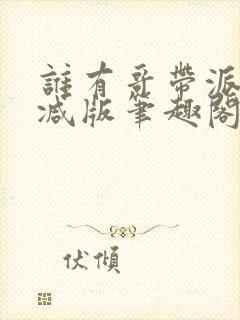 誰有哥帶派
減版筆趣閣
伏傾